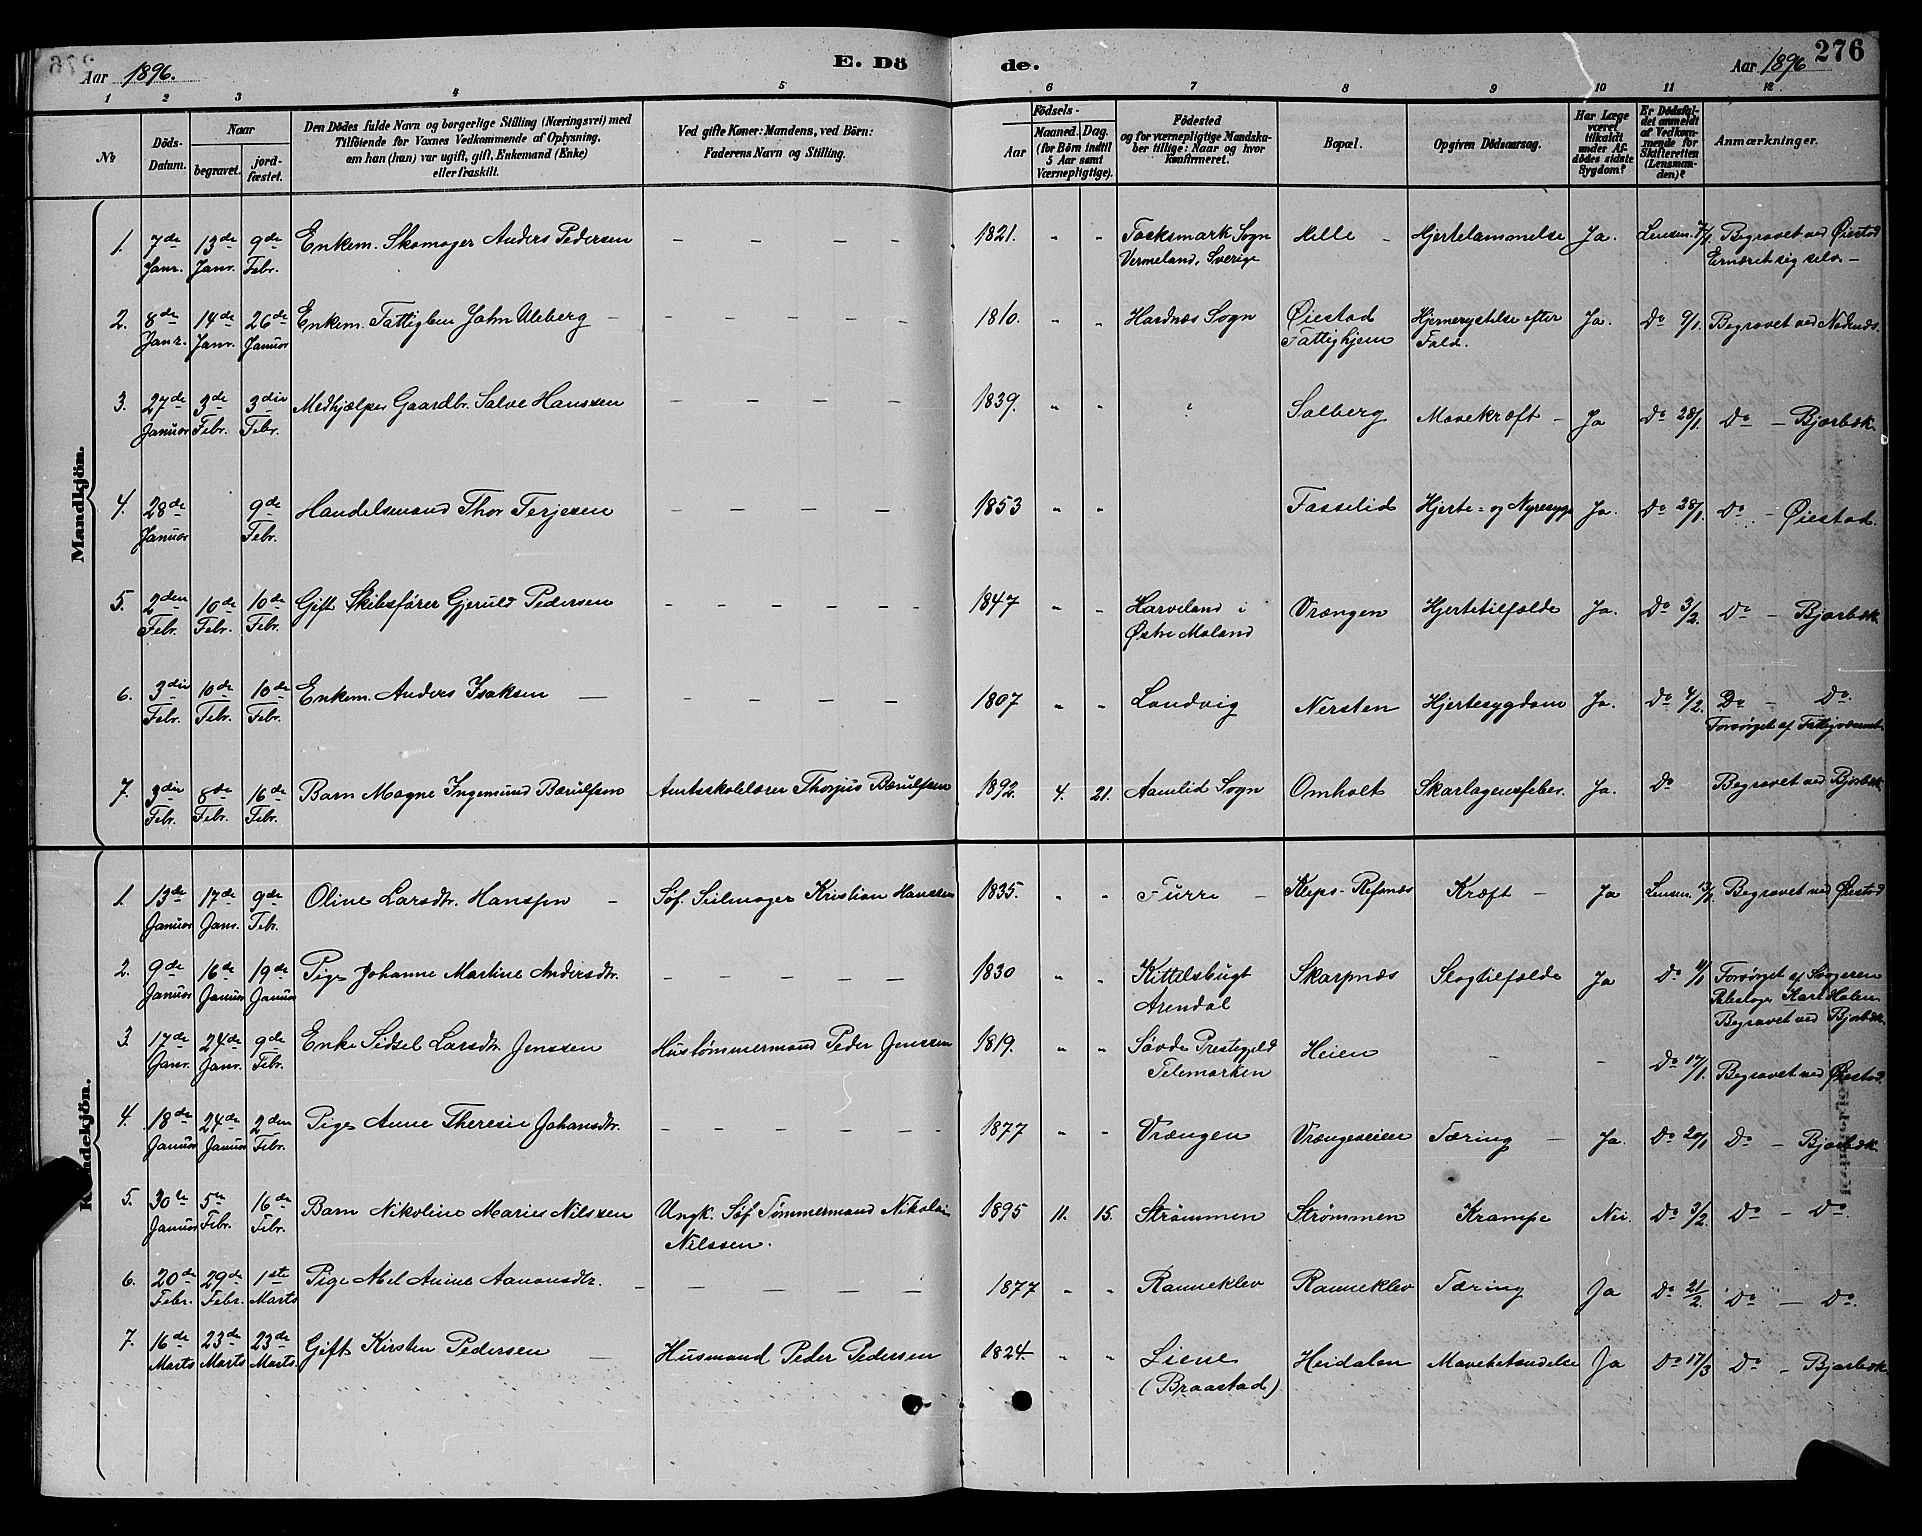 Aar 1896.
E. Dö
de.
Aar 1896
276
1 2 3 4 5 6 7 8 9 10 11 12
№
Döds-
Datum.
Naar
begravet.
jord-
fæstet.
Den Dödes fulde Navn og borgerlige Stilling (Næringsvei) med
Tilföiende for Voxnes Vedkommende af Oplysning,
om han (hun) var ugift, gift, Enkemand (Enke)
eller fraskilt.
Ved gifte Koner: Mandens, ved Börn:
Faderens Navn og Stilling.
Födsels-
Aar
Maaned. Dag.
(for Börn indtil
5 Aar samt
Værnepligtige).
Födested
og for værnepligtige Mandska-
ber tillige: Naar og hvor
Konfirmeret.
Bopæl.
Opgiven Dödsaarsag.
Har Læge
været
tilkaldt
under Af-
dödes sidste
Sygdom?
Er Dödsfal-
det anmeldt
af Vedkom-
mende for
Skifteretten
(Lensman-
den)?
Anmærkninger.
Mandkjön.
1. 7de Janr. 13de Janr. 9de Febr. Enkem. Skomager Anders Pedersen – – – – – 1821. " " Tocksmark Sogn Vermeland, Sverige Hille – Hjertelammelse Ja. Lensm. 7/1. Begravet ved Øiestad Ernæret sig selv –
2. 8de Janr. 14de Janr. 26de Januar Enkem. Fattiglem John Uleberg – – – – – – 1810. " " Hordnæs Sogn Øiestad Fattighjem Hjernerystelse efter Fald. Ja. Do 9/1. Begravet ved Nodenæs.
3. 27de Januar 3de Febr. 3die Febr. Medhjælper Gaardbr. Salve Hanssen – – – – – 1839. " " ? Solberg Mavekræft – Ja Do 28/1. Do – Bjorbæk.
4. 28de Januar 9de Febr. Handelsmand Thor Terjesen – – – – – 1853 " " Fasselid Hjerte- og Nyresyge Ja. Do 28/1. Do – Øiestad.
5. 2den Febr. 10de Febr. 10de Febr. Gift Skibsfører Gjeruld Pedersen – – – – – – 1847 " " Harveland i Østre Moland Vrængen Hjertetilfælde Ja. Do 3/2. Do – Bjorbæk.
6. 3die Febr. 10de Febr. 10de Febr. Enkem. Anders Isaksen – – – – – – 1807 " " Landvig Nersten Hjertesygdom Ja. Do 4/2. Do – Do. Forsørget af Fattigvæsenet
7. 3die Febr. 8de Febr. 16de Febr. Barn Magne Ingemund Bærulfsen Amtsskolelærer Thorjus Bærulfsen 1892. 4. 21. Aamlid Sogn Omholt Skarlagensfeber. Ja. Do Begravet ved Bjorbæk.
Kvindekjön.
1. 13de Januar 17de Janr. 9de Febr. Oline Larsdtr. Hanssen – Søf. Seilmager Kristian Hanssen 1835. " " Furre – Kleps-Refsnæs Kræft – Ja Lensm. 13/1. Begravet ved Øiestad
2. 9de Januar 16de Januar 19de Januar Pige Johanne Martine Andersdtr. – – – – – 1830 " " Kittelsbugt Arendal Skarpnæs Slagtilfælde Ja Do 11/1 Forsørget af Svogeren Karl Holen. Begravet ved Bjorbæk.
3. 17de Janr. 24de Janr. 9de Febr. Enke Sidsel Larsdtr. Jenssen Hustømmermand Peder Jenssen 1819. " " Søvde Prestegjeld Telemarken Heien – – Do 17/1. Begravet ved Øiestad.
4. 18de Januar 24de Januar 2den Febr. Pige Anne Theresie Johansdtr. – – – – – 1877 " " Vrængen Vrængeveien Tæring – Ja. Do 20/1 Do – Bjorbæk
5. 30te Januar 5te Febr. 16de Febr. Barn Nikoline Marie Nilssen Ungk. Søf. Tømmermand Nikolai Nilssen. 1895 11. 15. Strømmen Strømmen Krampe Nei. Do 3/2. Do – Do.
6. 20de Febr. 29de Febr. 1ste Marts Pige Abel Anine Aanonsdtr. – – – – – – 1877 " " Ranneklev Ranneklev Tæring Ja Do 21/2. Do – Do.
7. 16de Marts 23de Marts 23de Marts Gift Kirsten Pedersen – Husmand Peder Pedersen 1824 " " Liene (Braastad) Heidalen Mavebetændelse Ja Do 17/3 Do – Bjorbæk.